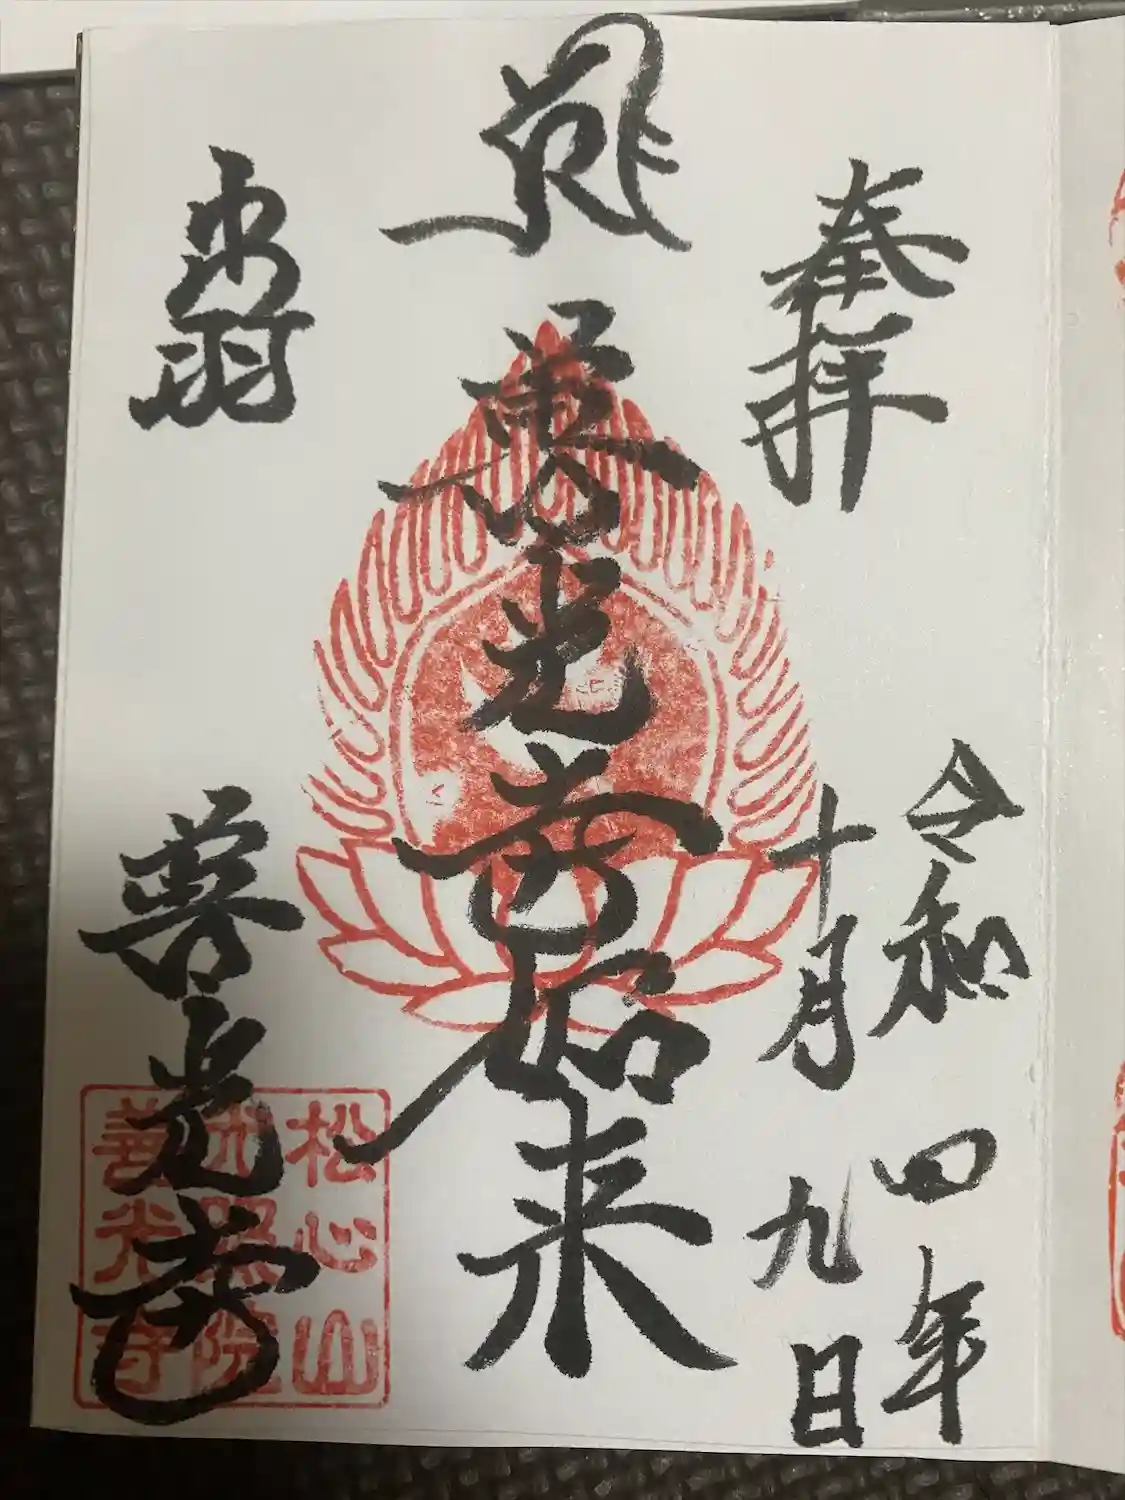 奉拝
令和四年
十月九日
善光寺如来
羽
善光寺
松心山
光照院
善光寺